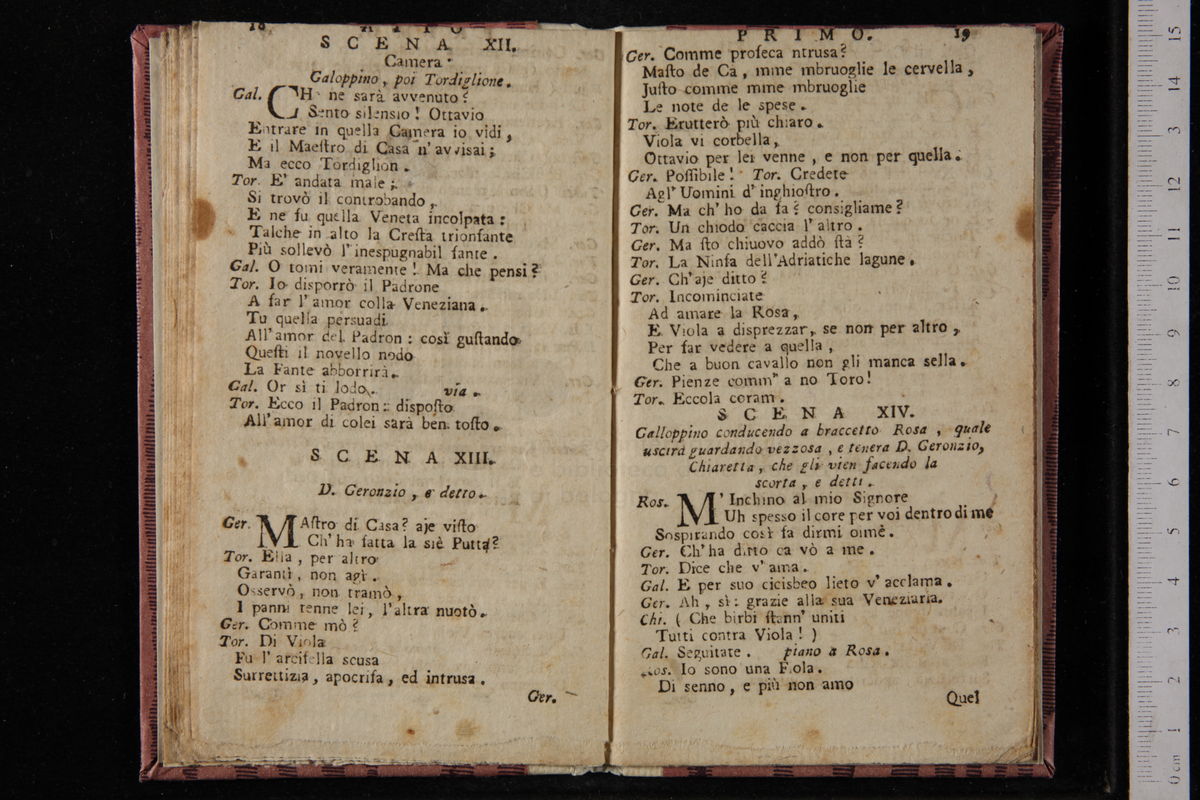 18 ATTO
SCENA XII.
Camera.
Galoppino, poi Tordiglione.
Gal. CH ne sarà avvenuto?
Sento silenzio! Ottavio
Entrare in quella Camera io vidi,
E il Maeſtro di Casa n'avvisai;
Ma ecco Tordiglion.
Tor. E' andata male;
Si trovò il controbando,
E ne fu quella Veneta incolpata:
Talche in alto la Creſta trionfante
Più sollevò l'inespugnabil fante.
Gal. O tomi veramente! Ma che pensi?
Tor. Io disporrò il Padrone
A far l'amor colla Veneziana.
Tu quella persuadi
All'amor del Padron: così guſtando
Queſti il novello nodo
La Fante abborrirà.
Gal. Or sì ti lodo. via.
Tor. Ecco il Padron: diſpoſto
All'amor di colei sarà ben toſto.
SCENA XIII.
D. Geronzio, e detto.
Ger. MAſtro di Casa? aje viſto
Ch'ha fatta la siè Putta?
Tor. Ella, per altro
Garantì, non agì.
Osservò, non tramò,
I panni tenne lei, l'altra nuotò.
Ger. Comme mò?
Tor. Di Viola
Fu l'arcifella scusa
Surrettizia, apocrifa, ed intrusa.
Ger.
PRIMO. 19
Ger. Comme profeca ntrusa?
Maſto de Cà, mme mbruoglie le cervella,
Juſto comme mme mbruoglie
Le note de le spese.
Tor. Erutterò più chiaro.
Viola vi corbella,
Ottavio per lei venne, e non per quella.
Ger. Poſſibile! Tor. Credete
Agl'Uomini d'inghioſtro.
Ger. Ma ch'ho da fa? consigliame?
Tor. Un chiodo caccia l'altro.
Ger. Ma ſto chiuovo addò ſtà?
Tor. La Ninfa dell'Adriatiche lagune.
Ger. Ch'aje ditto?
Tor. Incominciate
Ad amare la Rosa,
E Viola a disprezzar, se non per altro,
Per far vedere a quella,
Che a buon cavallo non gli manca sella.
Ger. Pienze comm' a no Toro!
Tor. Eccola coram.
SCENA XIV.
Galloppino conducendo a braccetto Rosa, quale
uscirà guardando vezzosa, e tenera D. Geronzio,
Chiaretta, che gli vien facendo la
scorta, e detti.
Ros. M'Inchino al mio Signore
Uh spesso il core per voi dentro di me
Sospirando così fa dirmi oimè.
Ger. Ch'ha ditto ca vò a me.
Tor. Dice che v'ama.
Gal. E per suo cicisbeo lieto v'acclama.
Ger. Ah, sì: grazie alla sua Veneziaria.
Chi. (Che birbi ſtann' uniti
Tutti contra Viola!)
Gal. Seguitate. piano a Rosa.
Ros. Io sono una Fiola.
Di senno, e più non amo
Quel